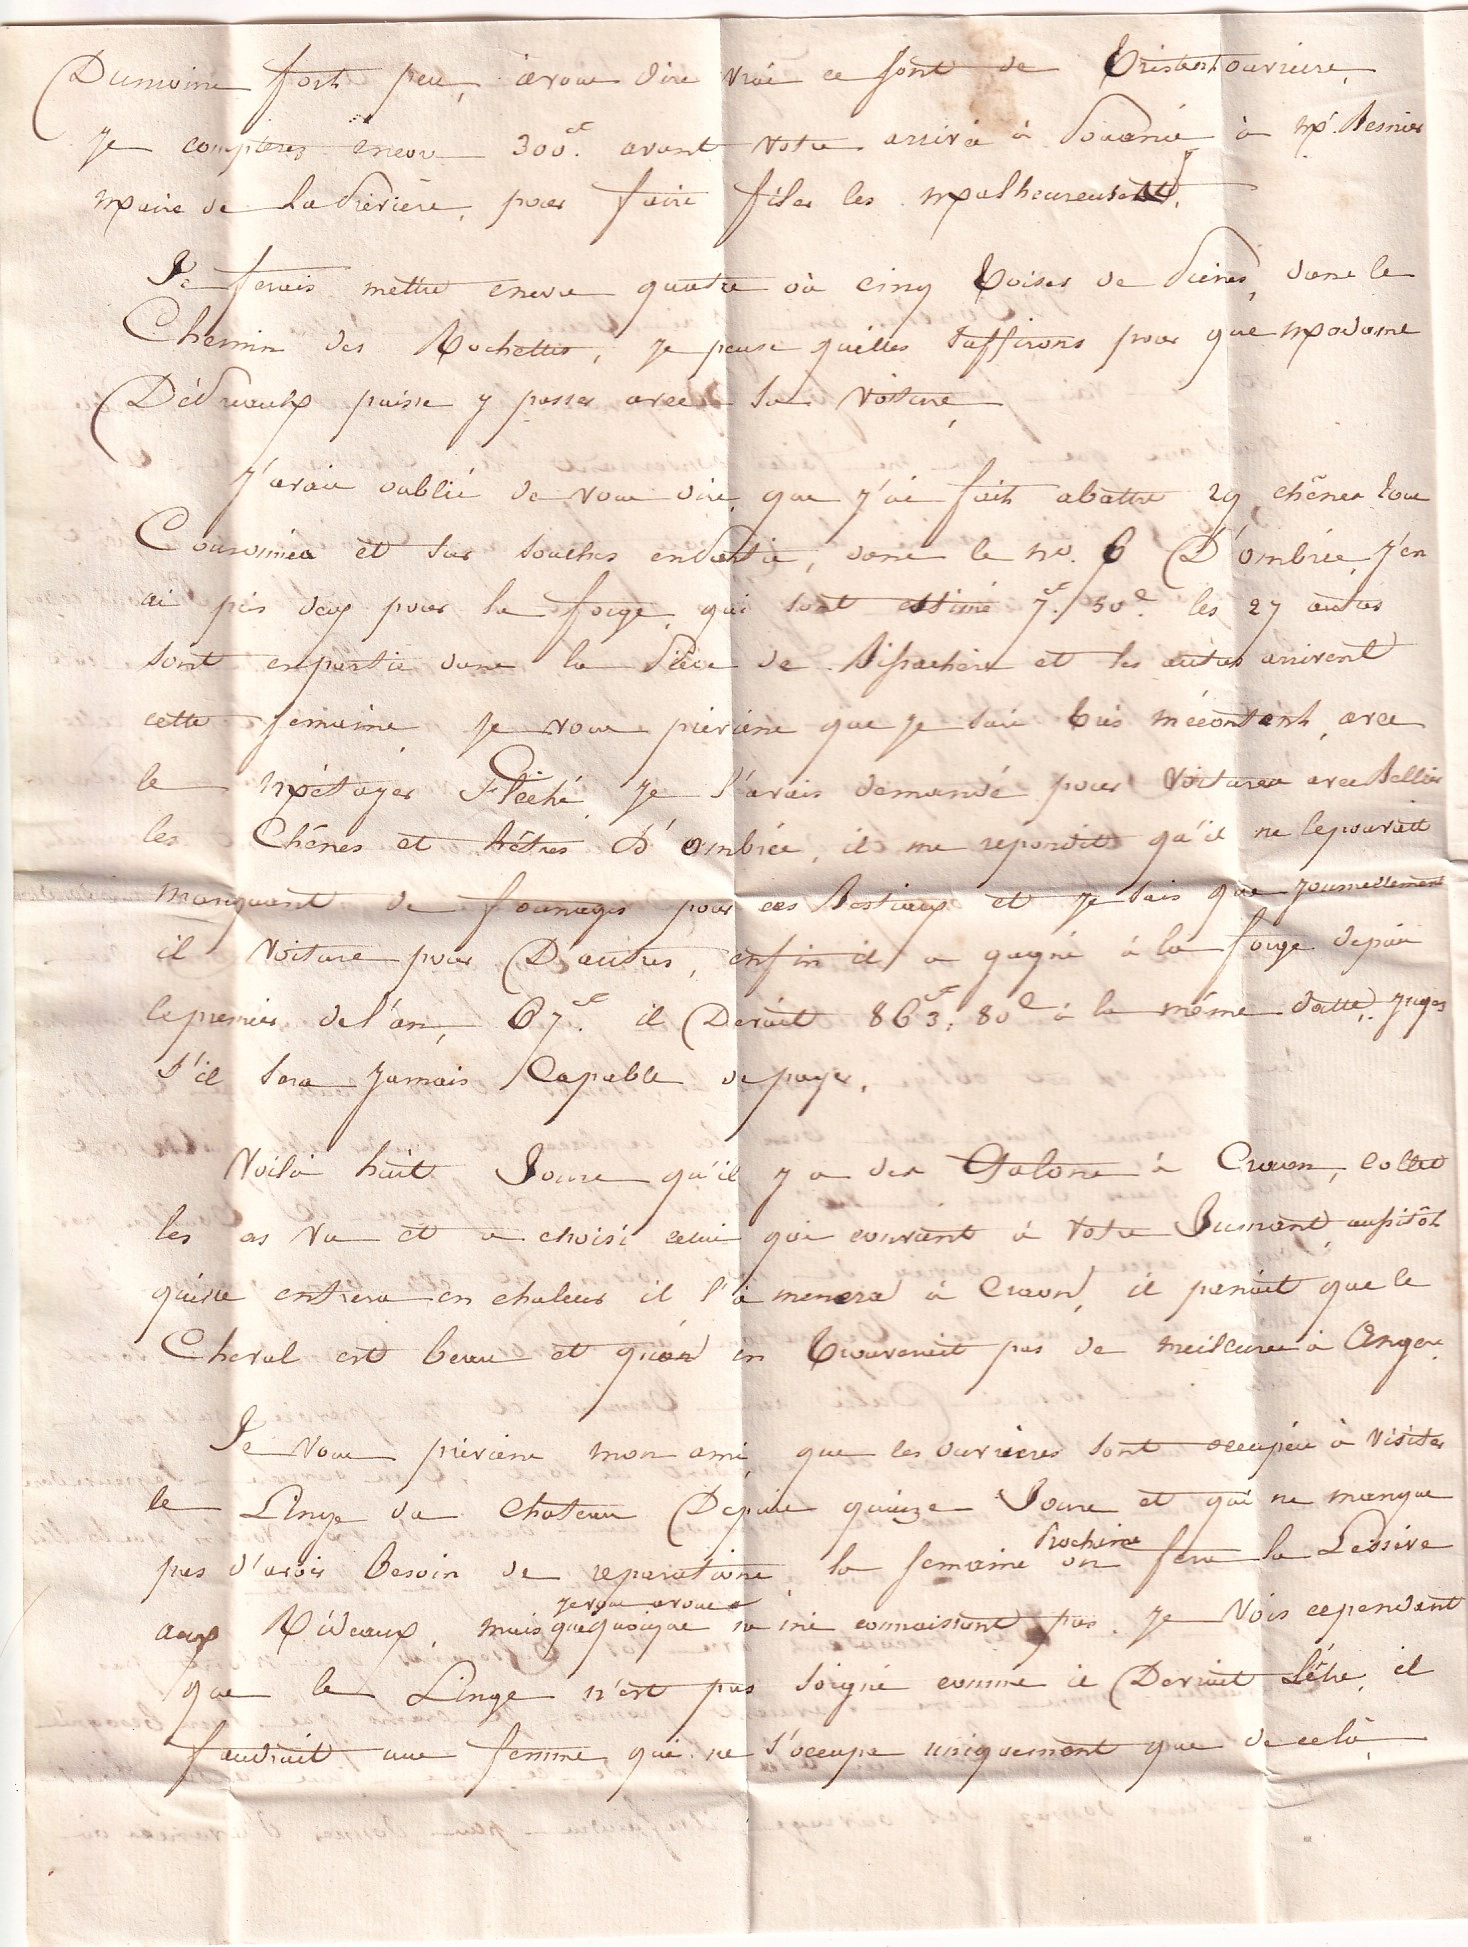 Dumoins fort peu, avous dire vrai ce sont de tristes ouvriere,
Je compterez encore 300.ᶠ avant votre arrivée à Pouancé à Mʳ. Besnier
Maire de La Prévière, pour faire filer les Malheureuses.
Je ferais mettre encore quatre où cinq toises de Pierres, dans le
Chemin des Rochettes, je pense quelles suffirons pour que Madame
puisse y passer avec sa Voiture,
J'avais oublié de vous dire que j'ai fait abattre 29 chênes tous
Couronnés et sur souches en partie, dans le no. 6 D'ombrée, j'en
ai pris deux pour la forge, qui sont estimé 7.ᶠ 50.ᶜ les 27 autres
sont enpartie dans la Pièce de et les autres arrivent
cette semaine je vous préviens que je suis très mécontent, avec
le Métayer Fléché je l'avais demandé pour Voiturer avec Bellier
les Chênes et hêtres D'ombrée, il me repondit qu'il ne lepouvait
manquant de fourages pour ces Bestiaux et je sais que journellement
il Voiture pour D'autres, enfin il a gagné à la forge depuis
lepremier del'an, 67.ᶠ il Devait 863,ᶠ 80ᶜ à la même datte, jugez
s'il sera jamais Capable depayer.
Voilà huit Jours qu'il y a des Etalons à Craon, Collet
les as vu et a choisi celui qui convient à votre Jument, aussitôt
qu'elle entrera en chaleur il l'à menera à Craon, il parait que le
Cheval est beau et qu'on en trouverait pas de meilleurs à Angers.
Je vous préviens mon ami, que les ouvrieres sont occupées à visiter
le Linge du Chateau Depuis quinze Jours et qui ne manque
pas d'avoir besoin de reparations, la semaine Prochaine on fera la Lessive
aux Rideaux, mais jevous avoue que quoique ne mi connaissant pas. je Vois cependant
que le Linge n'est pas soigné comme il Devrait L'être, il
faudrait une femme qui ne s'occupe uniquement que de cela,